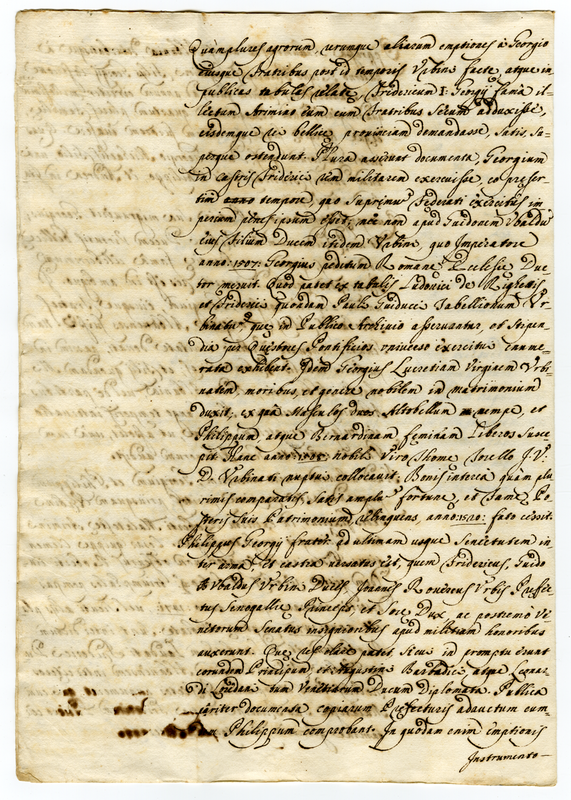 Quamplures agrorum, verumque aliarum emptiones à Georgio
eiusque fratribus post id temporis Vrbini facte, atque in
publicas tabulas relate, Fridericum I. Georgij fama il-
lectum Arimino eum cum fratribus secum adduxisse,
eisdemque rei bellice provinciam demandasse, satis, su-
perque ostendunt. Plura asserunt documenta, Georgium
in castris Friderici rem militarem exercuisse, eo preser-
tim tempore, quo supremum federati exercitus im
perium penes ipsum esset, nec non apud Guidonem Vbaldum
eius filium Ducem itidem Vrbini, quo Imperatore
anno: 1507: Georgius peditum Romane Ecclesie Duc
tor meruit. Quod patet ex tabulis Ludovici de Righettis
et Friderici quondam Pauli Guiducci Tabellionum Vr-
binatum que in Publico Archivio asservantur, et stipen
dia per Questores Pontificios universo exercitui enume-
rata exhibent. Idem Georgius Lucretiam Virgiam Vrbi-
natem, moribus, et genere nobilem in matrimonium
duxit, ex qua Masculos duos Altobellum nempe, et
Philippum atque Bernardinam feminam liberos susce-
pit. Hanc anno nobili Viro Thome J. V.
D. Vrbinati nuptui collocavit. Bonis interea quam plu
rimis comparatis, satis ample fortune, et fame Po-
steris suis Patrimonium relinquens, anno: 1520: fato cessit.
Philippus Georgij frater ad ultimam usque senectutem in-
ter arma, et castra versatus est, quem Fridericus, Guido
Vbaldus Vrbini Duces, Joannes Rovereus Vrbis Prefec
tus Senogallie Princeps, et Sore Dux, ac postremo Ve-
netorum Senatus insignioribus apud militiam honoribus
auxerunt. Que res clare patet sicu in promptu erunt
eorundem Principum et Augustini Barbadici atque Leonar-
di Loredani tum Venetiarum Ducum diplomata. Publica
pariter documenta copiarum Prefecturis adauctum eum-
Philippum comprobant. In quodam enim emptionis
Instrumento—